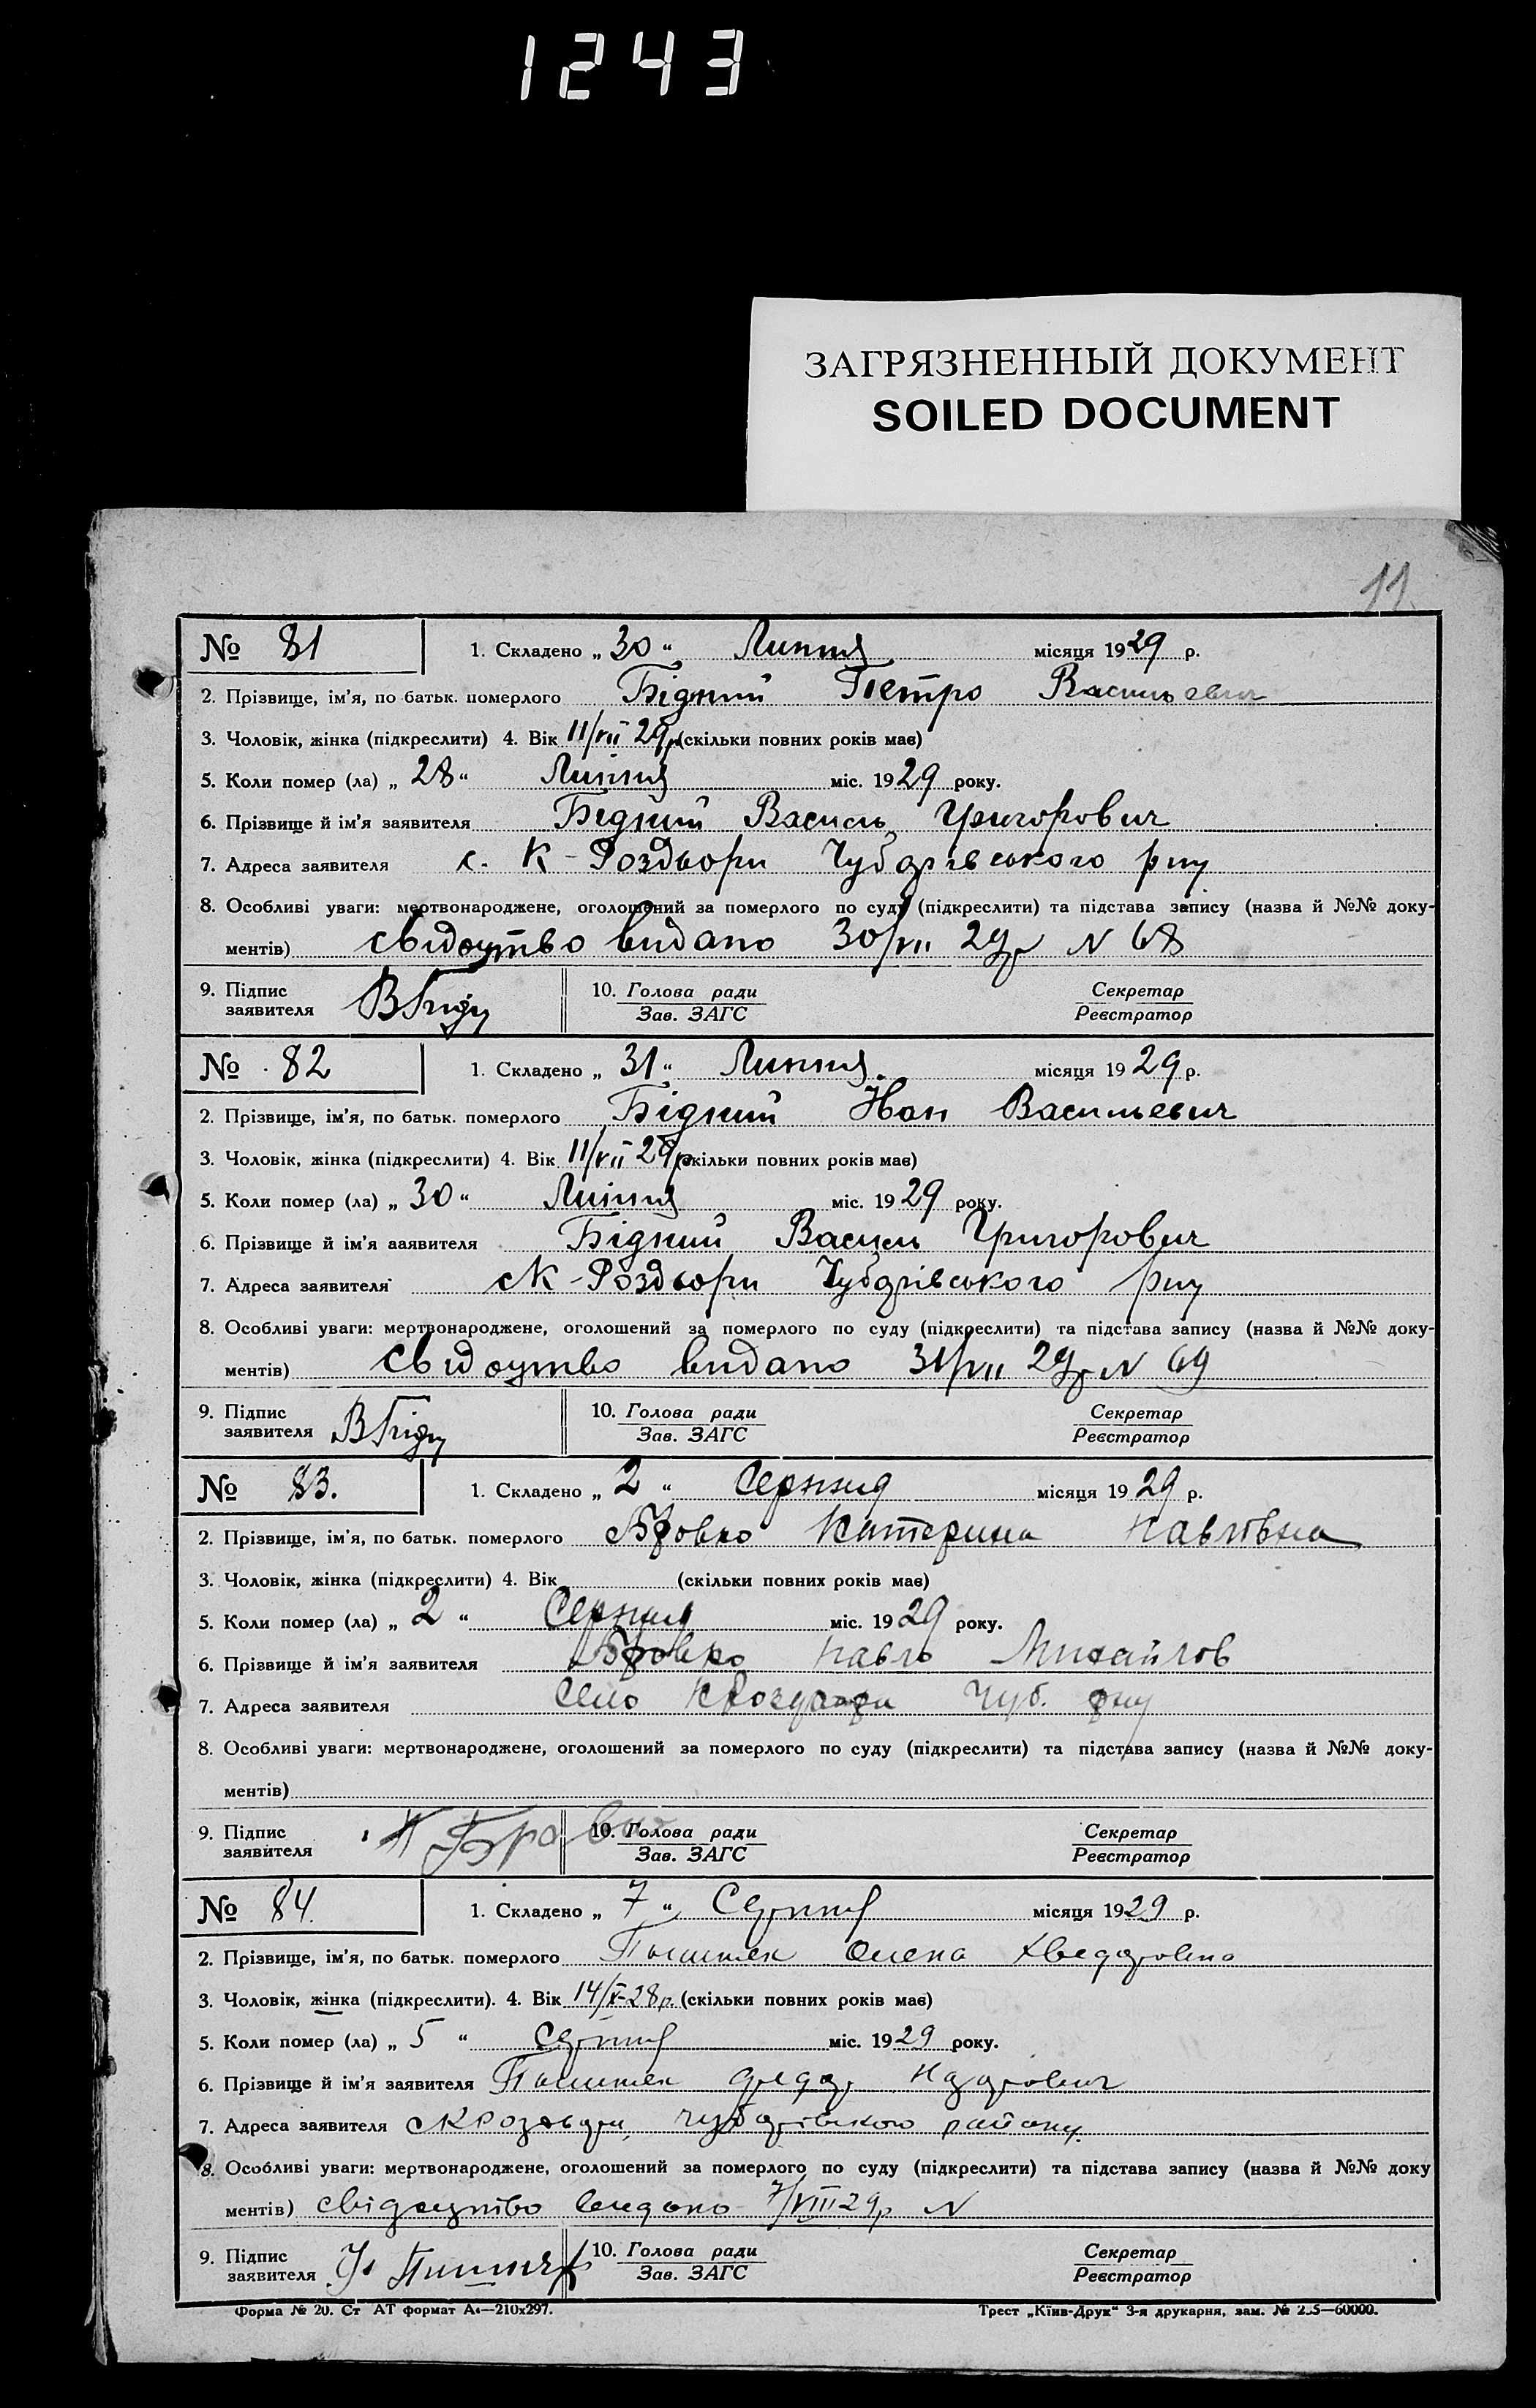 1243
ЗАГРЯЗНЕННЫЙ ДОКУМЕНТ
SOILED DOCUMENT
11
№ 81 1. Складено „ 30 “ Липня місяця 1929 р.
2. Прізвище, ім'я, по батьк. померлого Бідний Петро Васильевич
3. Чоловік, жінка (підкреслити) 4. Вік 11/VII 29р (скільки повних років має)
5. Коли помер (ла) „ 28 “ Липня міс. 1929 року.
6. Прізвище й ім'я заявителя Бідний Василь Григорович
7. Адреса заявителя с. К-Роздвори Чубарівського р-ну
8. Особливі уваги: мертвонароджене, оголошений за померлого по суду (підкреслити) та підстава запису (назва й №№ доку-
ментів) свідоцтво видано 30/VII 29р N 68
9. Підпис заявителя 10. Голова ради Зав. ЗАГС Секретар Реєстратор
№ 82 1. Складено „ 31 “ Липня місяця 1929 р.
2. Прізвище, ім'я, по батьк. померлого Бідний Іван Васильевич
3. Чоловік, жінка (підкреслити) 4. Вік 11/VII 29р (скільки повних років має)
5. Коли помер (ла) „ 30 “ Липня міс. 1929 року.
6. Прізвище й ім'я ааявителя Бідний Василь Григорович
7. Адреса заявителя с К-Роздвори Чубарівського р-ну
8. Особливі уваги: мертвонароджене, оголошений за померлого по суду (підкреслити) та підстава запису (назва й №№ доку-
ментів) свідоцтво видано 31/VII 29р N 69
9. Підпис заявителя 10. Голова ради Зав. ЗАГС Секретар Реєстратор
№ 83. 1. Складено „ 2 “ Серпня місяця 1929 р.
2. Прізвище, ім'я, по батьк. померлого Бровко Катерина Павлівна
3. Чоловік, жінка (підкреслити) 4. Вік (скільки повних років має)
5. Коли помер (ла) „ 2 “ Серпня міс. 1929 року.
6. Прізвище й ім'я заявителя Бровко Павло Михайлов
7. Адреса заявителя Село Чуб. р-ну
8. Особливі уваги: мертвонароджене, оголошений за померлого по суду (підкреслити) та підстава запису (назва й №№ доку-
ментів)
9. Підпис заявителя П Бровко 10. Голова ради Зав. ЗАГС Секретар Реєстратор
№ 84. 1. Складено „ 7 “ Серпня місяця 1929 р.
2. Прізвище, ім'я, по батьк. померлого Олена Хведоровна
3. Чоловік, жінка (підкреслити). 4. Вік 14/X-28р. (скільки повних років має)
5. Коли помер (ла) „ 5 “ Серпня міс. 1929 року.
6. Прізвище й ім'я заявителя
7. Адреса заявителя Чубарівського району.
8. Особливі уваги: мертвонароджене, оголошений за померлого по суду (підкреслити) та підстава запису (назва й №№ доку
ментів) свідоцтво видано 7/VIII 29р N
9. Підпис заявителя 10. Голова ради Зав. ЗАГС Секретар Реєстратор
Форма № 20. Ст АТ формат А4—210x297. Трест „Київ-Друк“ 3-я друкарня, зам. № 60000.